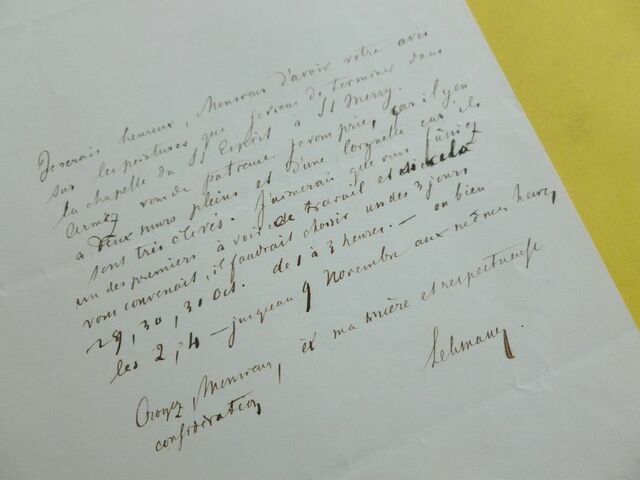 Je serais heureux, Monsieur d'avoir votre avis
sur les peintures que je viens de terminer dans
la chapelle du St Esprit à St Merry.
armez vous de patience je vous prie, car il y en
a deux murs pleins et d'une lorgnette car ils
sont très élevés. J'aimerais que vous fussiez
un des premiers à voir ce travail et si cela
vous convenait, il faudrait choisir un des 3 jours
29, 30, 31 Oct. de 1 à 3 heures. — ou bien
les 2, 4 — jusqu'au 9 Novembre aux mêmes heures,
Croyez, Monsieur, à ma sincère et respectueuse
considération,
Lehmann.